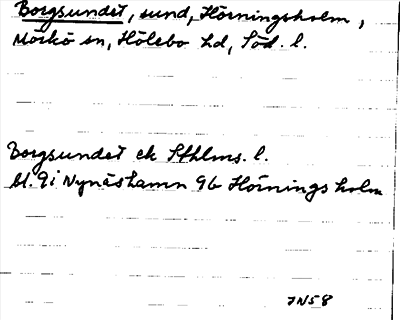 Borgsundet, sund, Hörningsholm,
Mörkö sn, Hölebo hd, Söd. l.
Borgsundet ek Sthlms. l.
bl. 9i Nynäshamn 9b Hörningsholm
JN58